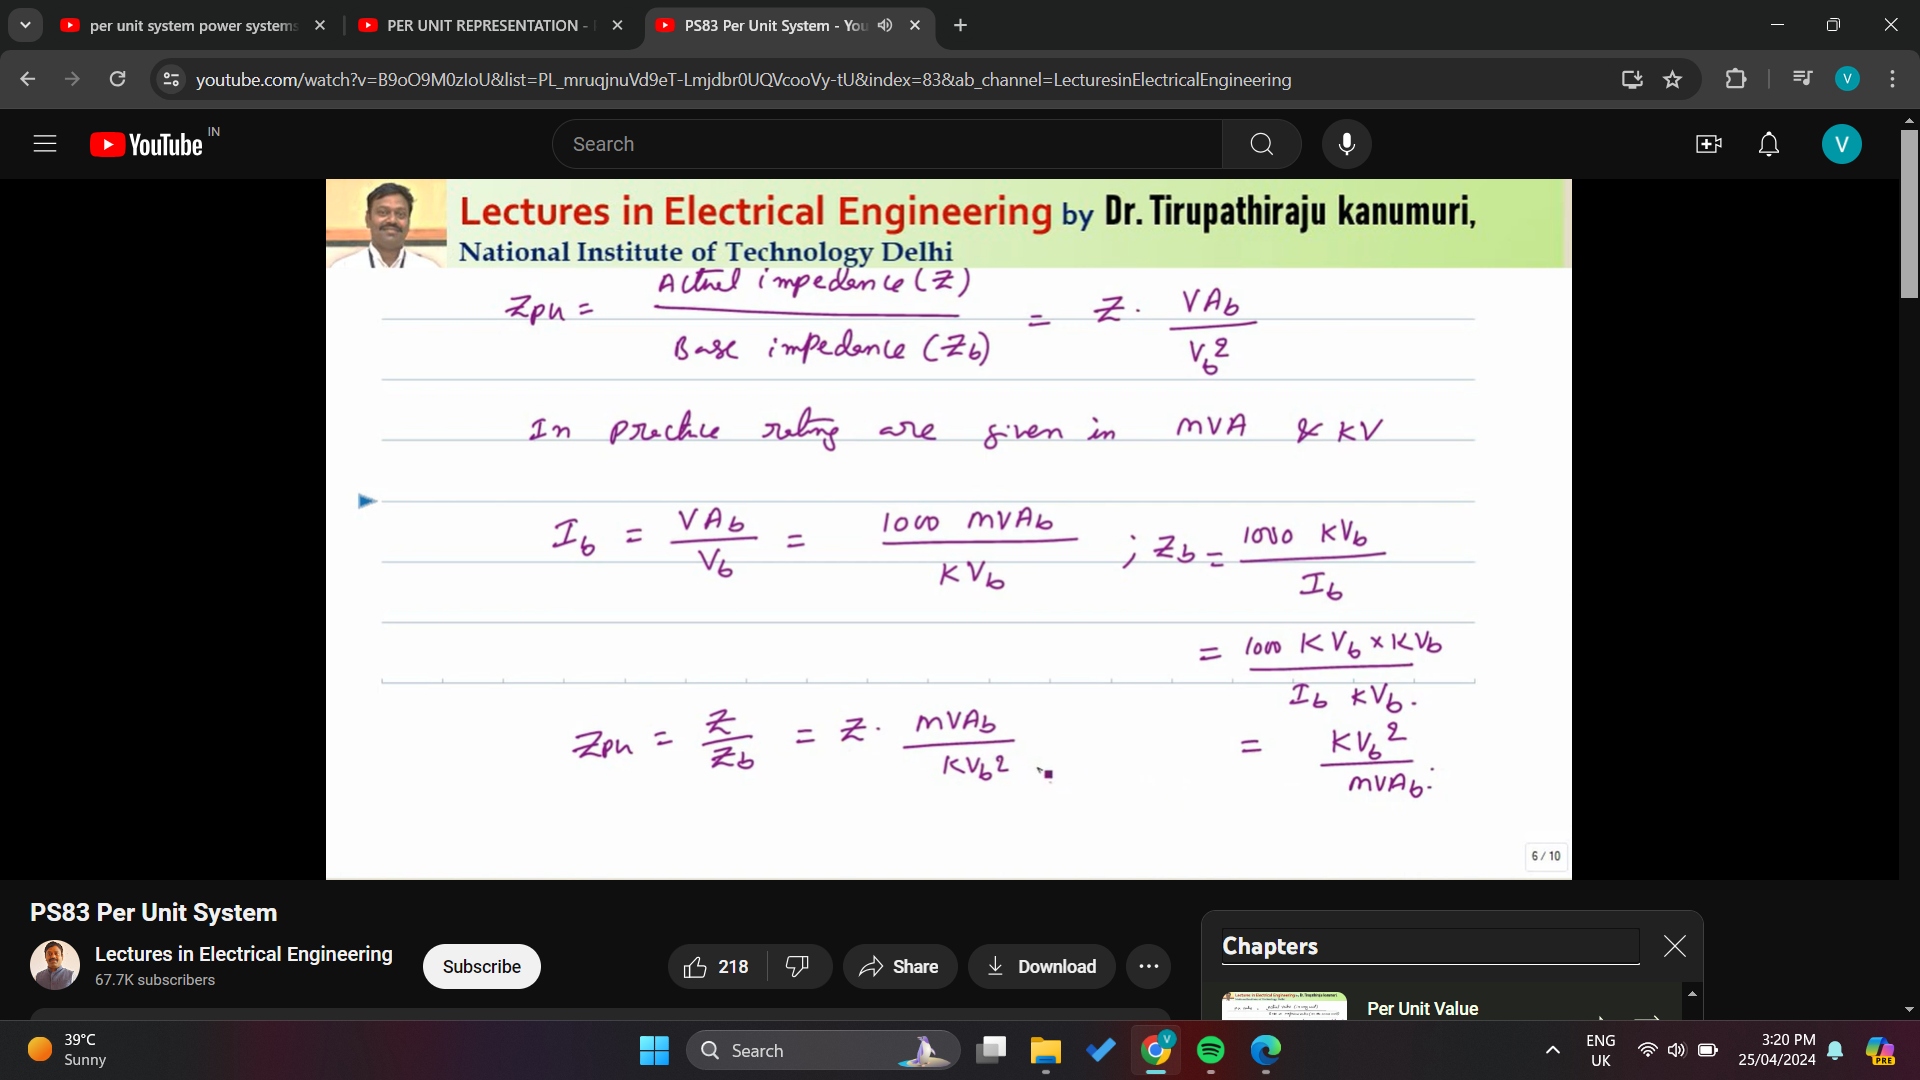 per unit system power systems
PER UNIT REPRESENTATION -
PS83 Per Unit System - You
youtube.com/watch?v=B9oO9M0zIoU&list=PL_mruqjnuVd9eT-Lmjdbr0UQVcooVy-tU&index=83&ab_channel=LecturesinElectricalEngineering
V
YouTube IN
Search
V
Lectures in Electrical Engineering by Dr. Tirupathiraju kanumuri,
National Institute of Technology Delhi
Zpu = Actual impedence (Z) / Base impedence (Zb) = Z · VAb / Vb²
In practice rating are given in MVA & KV
Ib = VAb / Vb = 1000 MVAb / KVb ; Zb = 1000 KVb / Ib
= 1000 KVb × KVb / Ib KVb.
Zpu = Z / Zb = Z · MVAb / KVb²
= KVb² / MVAb.
6 / 10
PS83 Per Unit System
Lectures in Electrical Engineering
67.7K subscribers
Subscribe
218
Share
Download
Chapters
Per Unit Value
39°C
Sunny
Search
V
ENG
UK
3:20 PM
25/04/2024
PRE